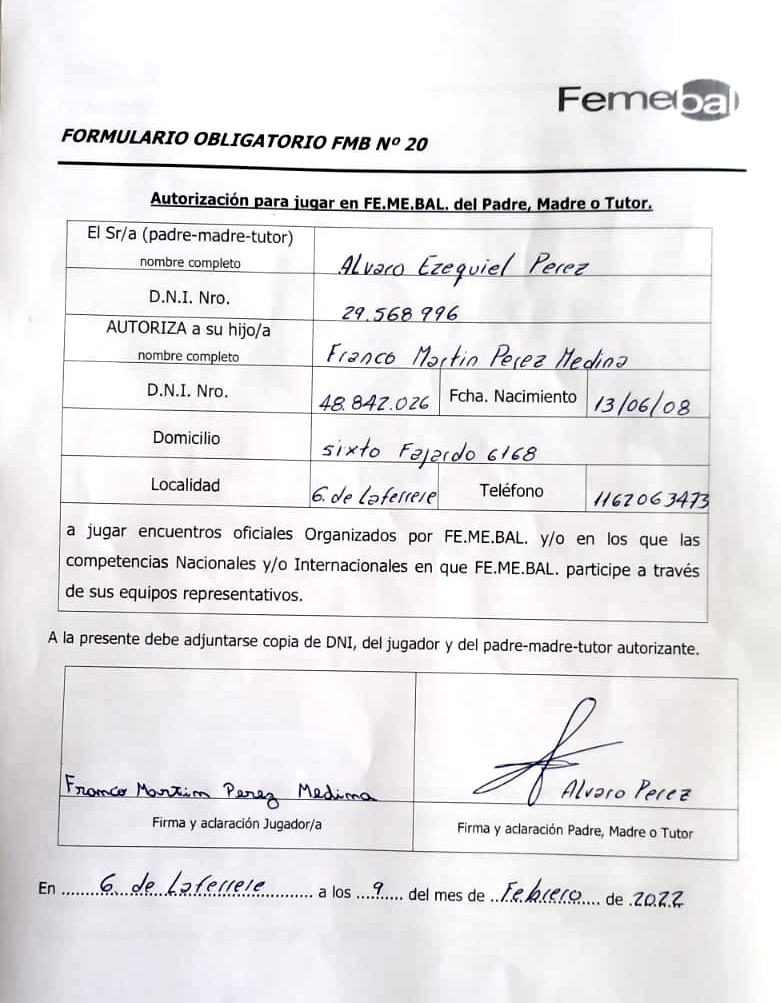 Femebal
FORMULARIO OBLIGATORIO FMB Nº 20
Autorización para jugar en FE.ME.BAL. del Padre, Madre o Tutor.
El Sr/a (padre-madre-tutor)
nombre completo
Alvaro Ezequiel Perez
D.N.I. Nro.
29.568 996
AUTORIZA a su hijo/a
nombre completo
Franco Martin Perez Medina
D.N.I. Nro.
48.842.026
Fcha. Nacimiento
13/06/08
Domicilio
sixto Fajardo 6168
Localidad
G. de Laferrere
Teléfono
1162063473
a jugar encuentros oficiales Organizados por FE.ME.BAL. y/o en los que las
competencias Nacionales y/o Internacionales en que FE.ME.BAL. participe a través
de sus equipos representativos.
A la presente debe adjuntarse copia de DNI, del jugador y del padre-madre-tutor autorizante.
Franco Martin Perez Medina
Alvaro Perez
Firma y aclaración Jugador/a
Firma y aclaración Padre, Madre o Tutor
En ......G. de Laferrere............ a los ...9.... del mes de ..Febrero.... de .2022